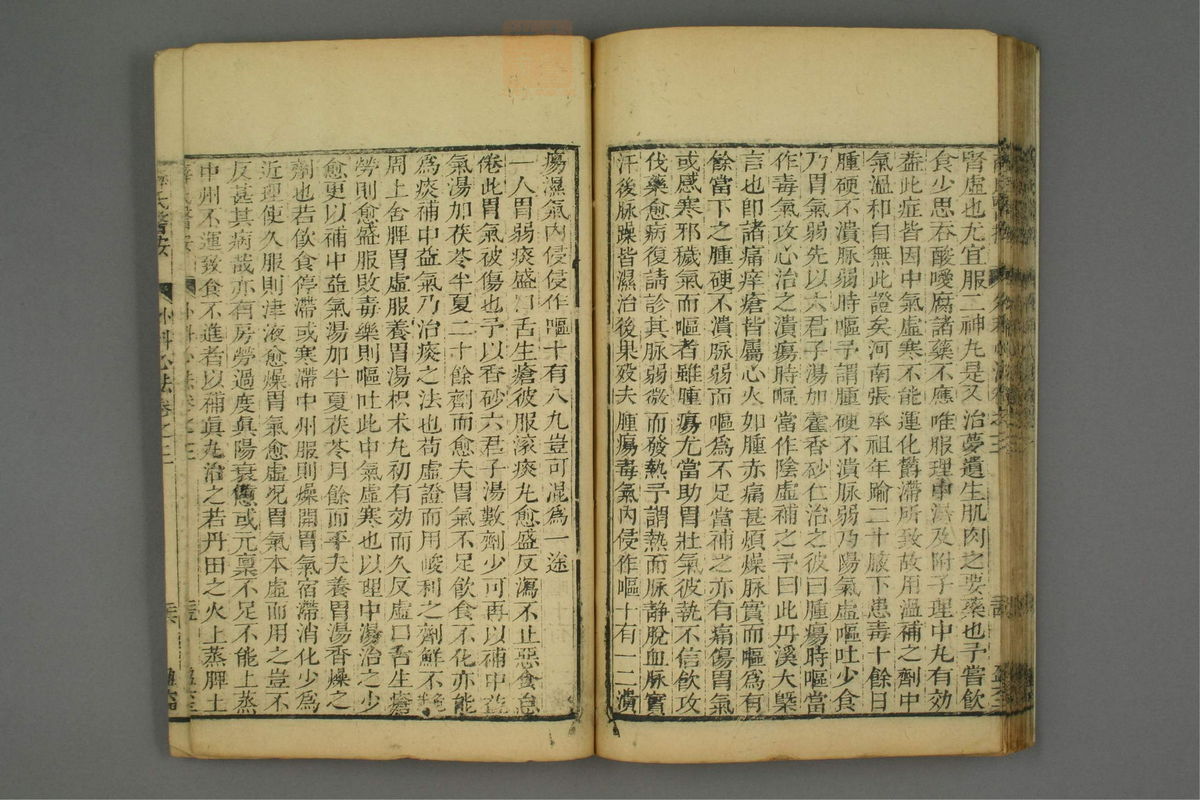 腎虛也尤宜服二神丸是又治夢遺生肌肉之要藥也予嘗飲
食少思吞酸噯腐諸藥不應唯服理中湯及附子理中丸有效
蓋此症皆因中氣虛寒不能運化欝滯所致故用溫補之劑中
氣溫和自無此證矣河南張承祖年踰二十腋下患毒十餘日
腫硬不潰脉弱時嘔予謂腫硬不潰脉弱乃陽氣虛嘔吐少食
乃胃氣弱先以六君子湯加藿香砂仁治之彼曰腫瘍時嘔當
作毒氣攻心治之潰瘍時嘔當作陰虛補之予曰此丹溪大槩
言也即諸痛痒瘡皆屬心火如腫赤痛甚煩燥脉實而嘔爲有
餘當下之腫硬不潰脉弱而嘔爲不足當補之亦有痛傷胃氣
或感寒邪穢氣而嘔者雖腫瘍尤當助胃壯氣彼執不信飲攻
伐藥愈病復請診其脉弱微而發熱予謂熱而脉静脫血脉實
汗後脉躁皆濕治後果歿夫腫瘍毒氣內侵作嘔十有一二潰
瘍濕氣內侵侵作嘔十有八九豈可混爲一途
一人胃弱痰盛口舌生瘡彼服滾痰丸愈盛反瀉不止惡食怠
倦此胃氣被傷也予以香砂六君子湯數劑少可再以補中益
氣湯加茯苓半夏二十餘劑而愈夫胃氣不足飲食不化亦能
爲痰補中益氣乃治痰之法也苟虛證而用峻利之劑鮮不
周上舍脾胃虛服養胃湯枳术丸初有効而久反虛口舌生瘡
勞則愈盛服敗毒藥則嘔吐此中氣虛寒也以理中湯治之少
愈更以補中益氣湯加半夏茯苓月餘而平夫養胃湯香燥之
劑也若飲食停滯或寒滯中州服則燥開胃氣宿滯消化少爲
近理使久服則津液愈燥胃氣愈虛况胃氣本虛而用之豈不
反甚其病哉亦有房勞過度眞陽衰憊或元稟不足不能上蒸
中州不運致食不進者以補眞丸治之若丹田之火上蒸脾土
氏醫按 外科心法卷之三